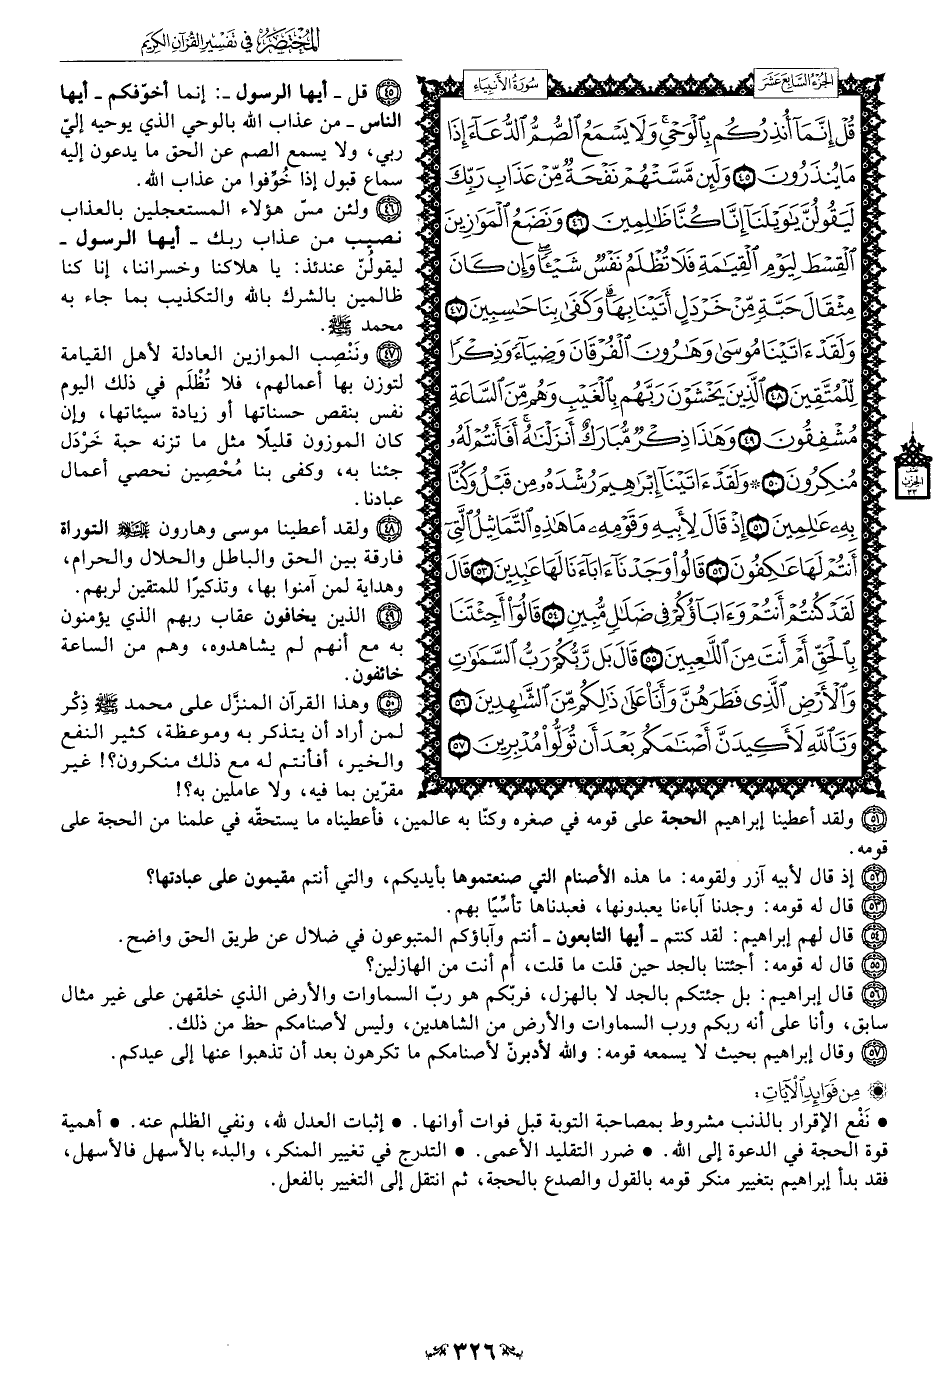 المختصر في تفسير القرآن الكريم
الجزء السابع عشر
سورة الأنبياء
قُلْ إِنَّمَآ أُنذِرُكُم بِٱلْوَحْىِ ۚ وَلَا يَسْمَعُ ٱلصُّمُّ ٱلدُّعَآءَ إِذَا
مَا يُنذَرُونَ ٤٥ وَلَئِن مَّسَّتْهُمْ نَفْحَةٌ مِّنْ عَذَابِ رَبِّكَ
لَيَقُولُنَّ يَٰوَيْلَنَآ إِنَّا كُنَّا ظَٰلِمِينَ ٤٦ وَنَضَعُ ٱلْمَوَٰزِينَ
ٱلْقِسْطَ لِيَوْمِ ٱلْقِيَٰمَةِ فَلَا تُظْلَمُ نَفْسٌ شَيْـًٔا ۖ وَإِن كَانَ
مِثْقَالَ حَبَّةٍ مِّنْ خَرْدَلٍ أَتَيْنَا بِهَا ۗ وَكَفَىٰ بِنَا حَٰسِبِينَ ٤٧
وَلَقَدْ ءَاتَيْنَا مُوسَىٰ وَهَٰرُونَ ٱلْفُرْقَانَ وَضِيَآءً وَذِكْرًا
لِّلْمُتَّقِينَ ٤٨ ٱلَّذِينَ يَخْشَوْنَ رَبَّهُم بِٱلْغَيْبِ وَهُم مِّنَ ٱلسَّاعَةِ
مُشْفِقُونَ ٤٩ وَهَٰذَا ذِكْرٌ مُّبَارَكٌ أَنزَلْنَٰهُ ۚ أَفَأَنتُمْ لَهُۥ
مُنكِرُونَ ٥٠ ۞ وَلَقَدْ ءَاتَيْنَآ إِبْرَٰهِيمَ رُشْدَهُۥ مِن قَبْلُ وَكُنَّا
بِهِۦ عَٰلِمِينَ ٥١ إِذْ قَالَ لِأَبِيهِ وَقَوْمِهِۦ مَا هَٰذِهِ ٱلتَّمَاثِيلُ ٱلَّتِىٓ
أَنتُمْ لَهَا عَٰكِفُونَ ٥٢ قَالُوا۟ وَجَدْنَآ ءَابَآءَنَا لَهَا عَٰبِدِينَ ٥٣ قَالَ
لَقَدْ كُنتُمْ أَنتُمْ وَءَابَآؤُكُمْ فِى ضَلَٰلٍ مُّبِينٍ ٥٤ قَالُوٓا۟ أَجِئْتَنَا
بِٱلْحَقِّ أَمْ أَنتَ مِنَ ٱللَّٰعِبِينَ ٥٥ قَالَ بَل رَّبُّكُمْ رَبُّ ٱلسَّمَٰوَٰتِ
وَٱلْأَرْضِ ٱلَّذِى فَطَرَهُنَّ وَأَنَا۠ عَلَىٰ ذَٰلِكُم مِّنَ ٱلشَّٰهِدِينَ ٥٦
وَتَٱللَّهِ لَأَكِيدَنَّ أَصْنَٰمَكُم بَعْدَ أَن تُوَلُّوا۟ مُدْبِرِينَ ٥٧
الحزب
٣٣
٤٥ قل ـ أيها الرسول ـ: إنما أخوّفكم ـ أيها
الناس ـ من عذاب الله بالوحي الذي يوحيه إليّ
ربي، ولا يسمع الصم عن الحق ما يدعون إليه
سماع قبول إذا خُوِّفوا من عذاب الله.
٤٦ ولئن مسّ هؤلاء المستعجلين بالعذاب
نصيب من عذاب ربك ـ أيها الرسول ـ
ليقولُنّ عندئذ: يا هلاكنا وخسراننا، إنا كنا
ظالمين بالشرك بالله والتكذيب بما جاء به
محمد ﷺ.
٤٧ ونَنْصِب الموازين العادلة لأهل القيامة
لتوزن بها أعمالهم، فلا تُظْلَم في ذلك اليوم
نفس بنقص حسناتها أو زيادة سيئاتها، وإن
كان الموزون قليلًا مثل ما تزنه حبة خَرْدَل
جئنا به، وكفى بنا مُحْصِين نحصي أعمال
عبادنا.
٤٨ ولقد أعطينا موسى وهارون التوراة
فارقة بين الحق والباطل والحلال والحرام،
وهداية لمن آمنوا بها، وتذكيرًا للمتقين لربهم.
٤٩ الذين يخافون عقاب ربهم الذي يؤمنون
به مع أنهم لم يشاهدوه، وهم من الساعة
خائفون.
٥٠ وهذا القرآن المنزَّل على محمد ﷺ ذِكْر
لمن أراد أن يتذكر به وموعظة، كثير النفع
والخير، أفأنتم له مع ذلك منكرون؟! غير
مقرّين بما فيه، ولا عاملين به؟!
٥١ ولقد أعطينا إبراهيم الحجة على قومه في صغره وكنّا به عالمين، فأعطيناه ما يستحقّه في علمنا من الحجة على
قومه.
٥٢ إذ قال لأبيه آزر ولقومه: ما هذه الأصنام التي صنعتموها بأيديكم، والتي أنتم مقيمون على عبادتها؟
٥٣ قال له قومه: وجدنا آباءنا يعبدونها، فعبدناها تأسّيًا بهم.
٥٤ قال لهم إبراهيم: لقد كنتم ـ أيها التابعون ـ أنتم وآباؤكم المتبوعون في ضلال عن طريق الحق واضح.
٥٥ قال له قومه: أجئتنا بالجد حين قلت ما قلت، أم أنت من الهازلين؟
٥٦ قال إبراهيم: بل جئتكم بالجد لا بالهزل، فربّكم هو ربّ السماوات والأرض الذي خلقهن على غير مثال
سابق، وأنا على أنه ربكم ورب السماوات والأرض من الشاهدين، وليس لأصنامكم حظ من ذلك.
٥٧ وقال إبراهيم بحيث لا يسمعه قومه: والله لأدبرنّ لأصنامكم ما تكرهون بعد أن تذهبوا عنها إلى عيدكم.
من فوائد الآيات:
• نَفْع الإقرار بالذنب مشروط بمصاحبة التوبة قبل فوات أوانها. • إثبات العدل لله، ونفي الظلم عنه. • أهمية
قوة الحجة في الدعوة إلى الله. • ضرر التقليد الأعمى. • التدرج في تغيير المنكر، والبدء بالأسهل فالأسهل،
فقد بدأ إبراهيم بتغيير منكر قومه بالقول والصدع بالحجة، ثم انتقل إلى التغيير بالفعل.
٣٢٦